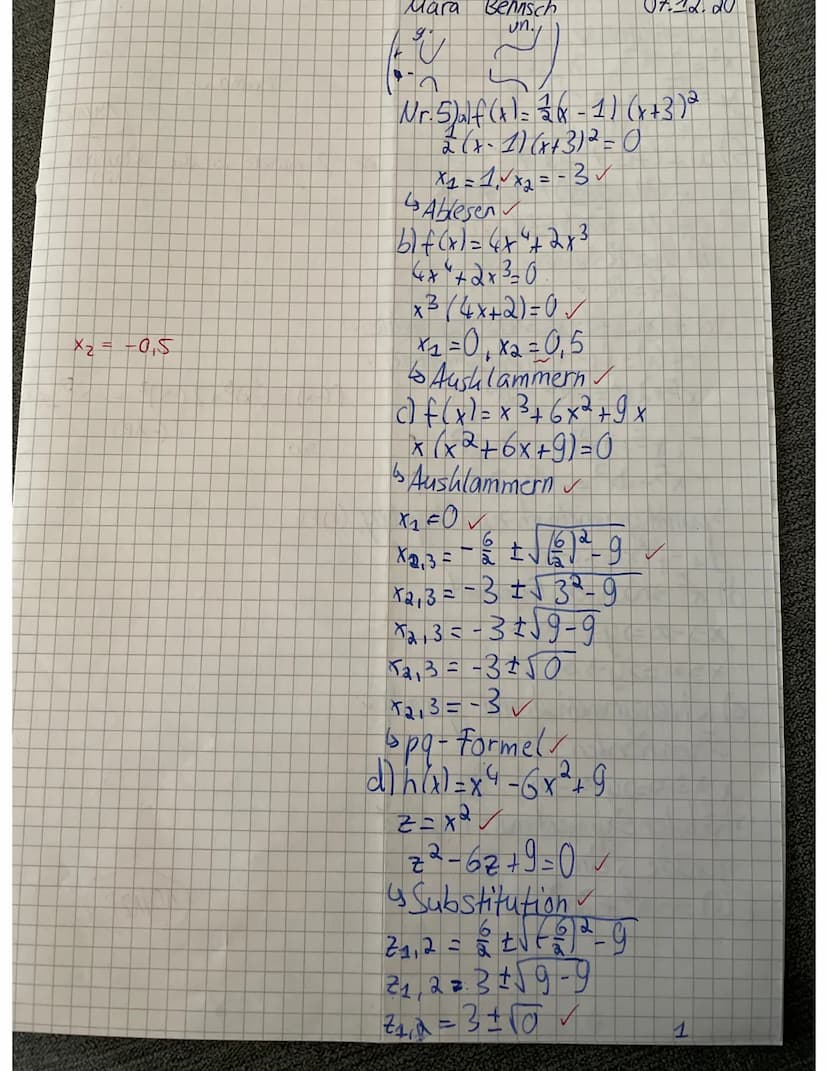 Mara Behnsch 07.12.20
g. un.
+
-
Nr.5)a)f(x)=½(x-1)(x+3)²
½(x-1)(x+3)²=0
x₁=1,✓x₂=-3✓
↳Ablesen✓
b)f(x)=4x⁴+2x³
4x⁴+2x³=0
x³(4x+2)=0✓
x₁=0, x₂=0,5
x₂ = -0,5
↳Ausklammern✓
c)f(x)=x³+6x²+9x
x(x²+6x+9)=0
↳Ausklammern✓
x₁=0✓
x₂,₃=-6/2±√((6/2)²-9)✓
x₂,₃=-3±√(3²-9)
x₂,₃=-3±√(9-9)
x₂,₃=-3±√0
x₂,₃=-3✓
↳pq-Formel✓
d)h(x)=x⁴-6x²+9
z=x²✓
z²-6z+9=0✓
↳Substitution✓
z₁,₂=6/2±√((-6/2)²-9)
z₁,₂=3±√(9-9)
z₁,₂=3±√0✓
1